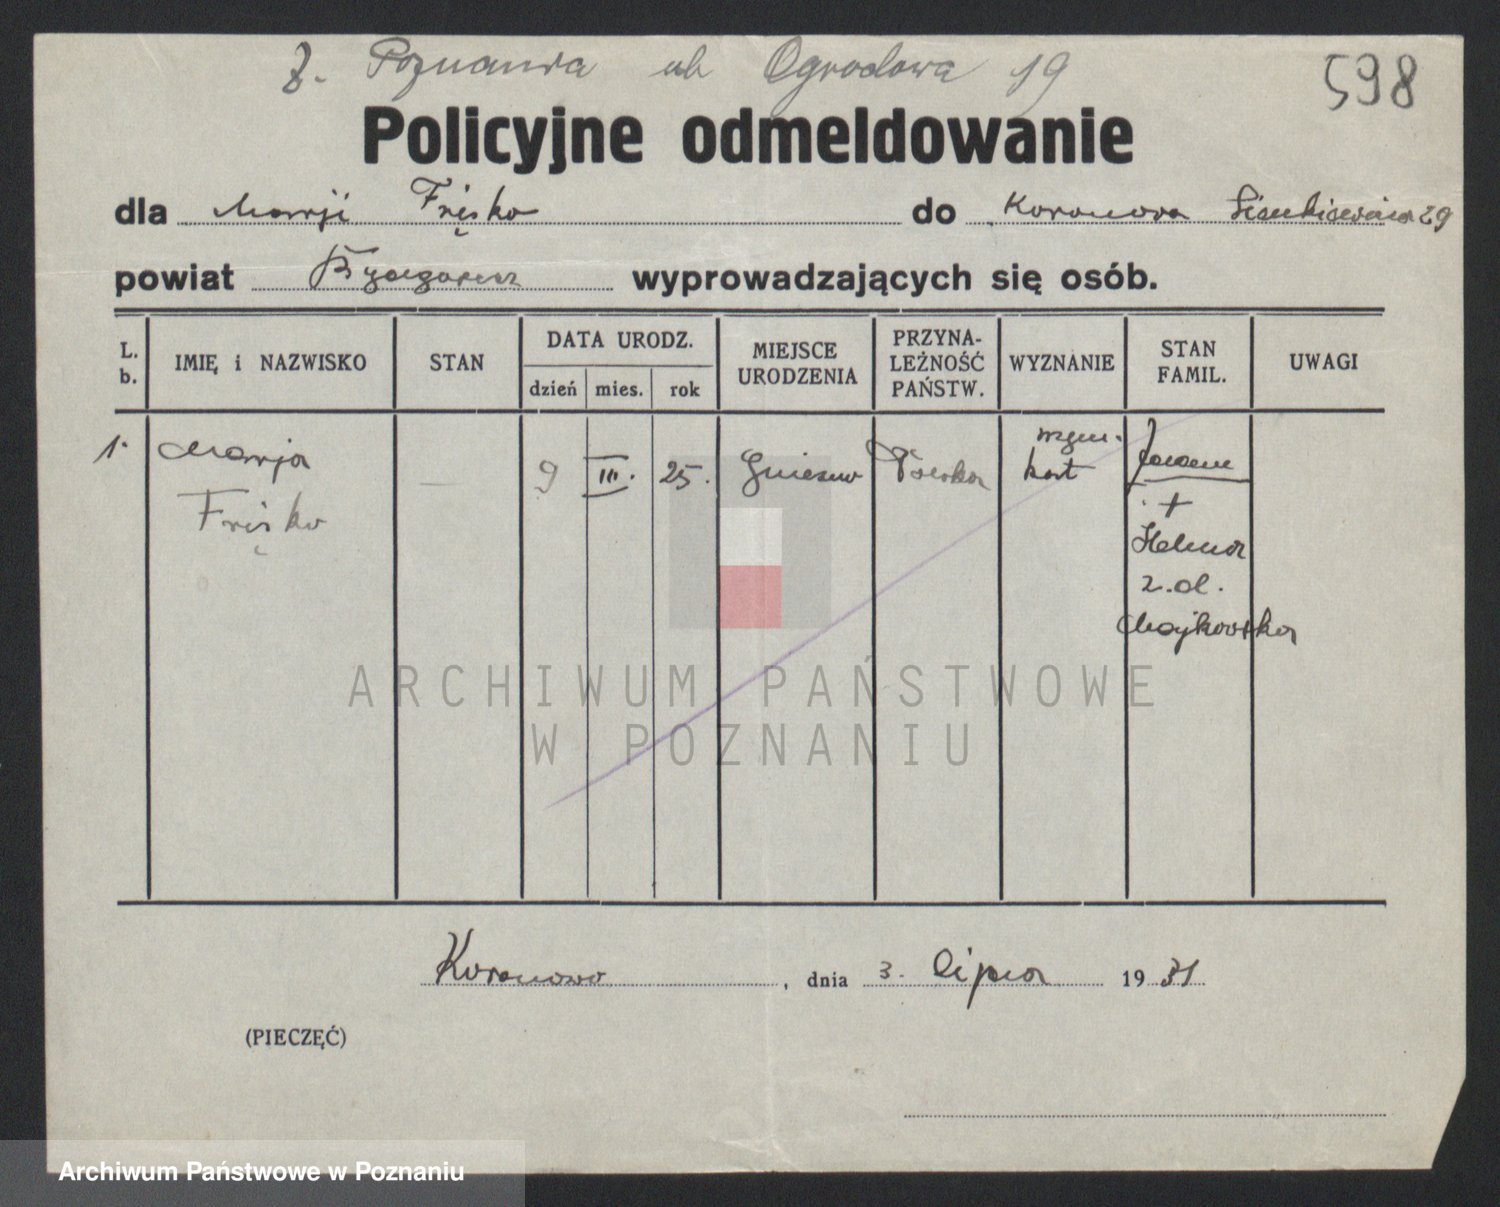 Z. Poznania ul Ogrodowa 19
598
Policyjne odmeldowanie
dla Marji Fręśko do Koronowa Sienkiewicza 29
powiat Bydgoszcz wyprowadzających się osób.
L. b. IMIĘ i NAZWISKO STAN DATA URODZ. dzień mies. rok MIEJSCE URODZENIA PRZYNALEŻNOŚĆ PAŃSTW. WYZNANIE STAN FAMIL. UWAGI
1. Marja — 9 III. 25. Gniezno Polska rzym.
Fręśko kat
+
Helena
z. d.
Majkowska
ARCHIWUM PAŃSTWOWE
W POZNANIU
Koronowo, dnia 3. lipca 1931
(PIECZĘĆ)
Archiwum Państwowe w Poznaniu